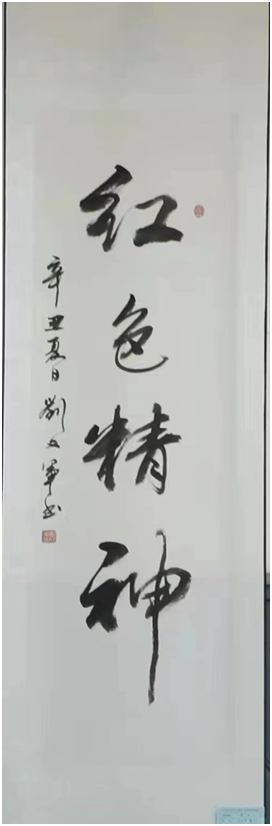 红色精神
辛丑夏日刘文军书